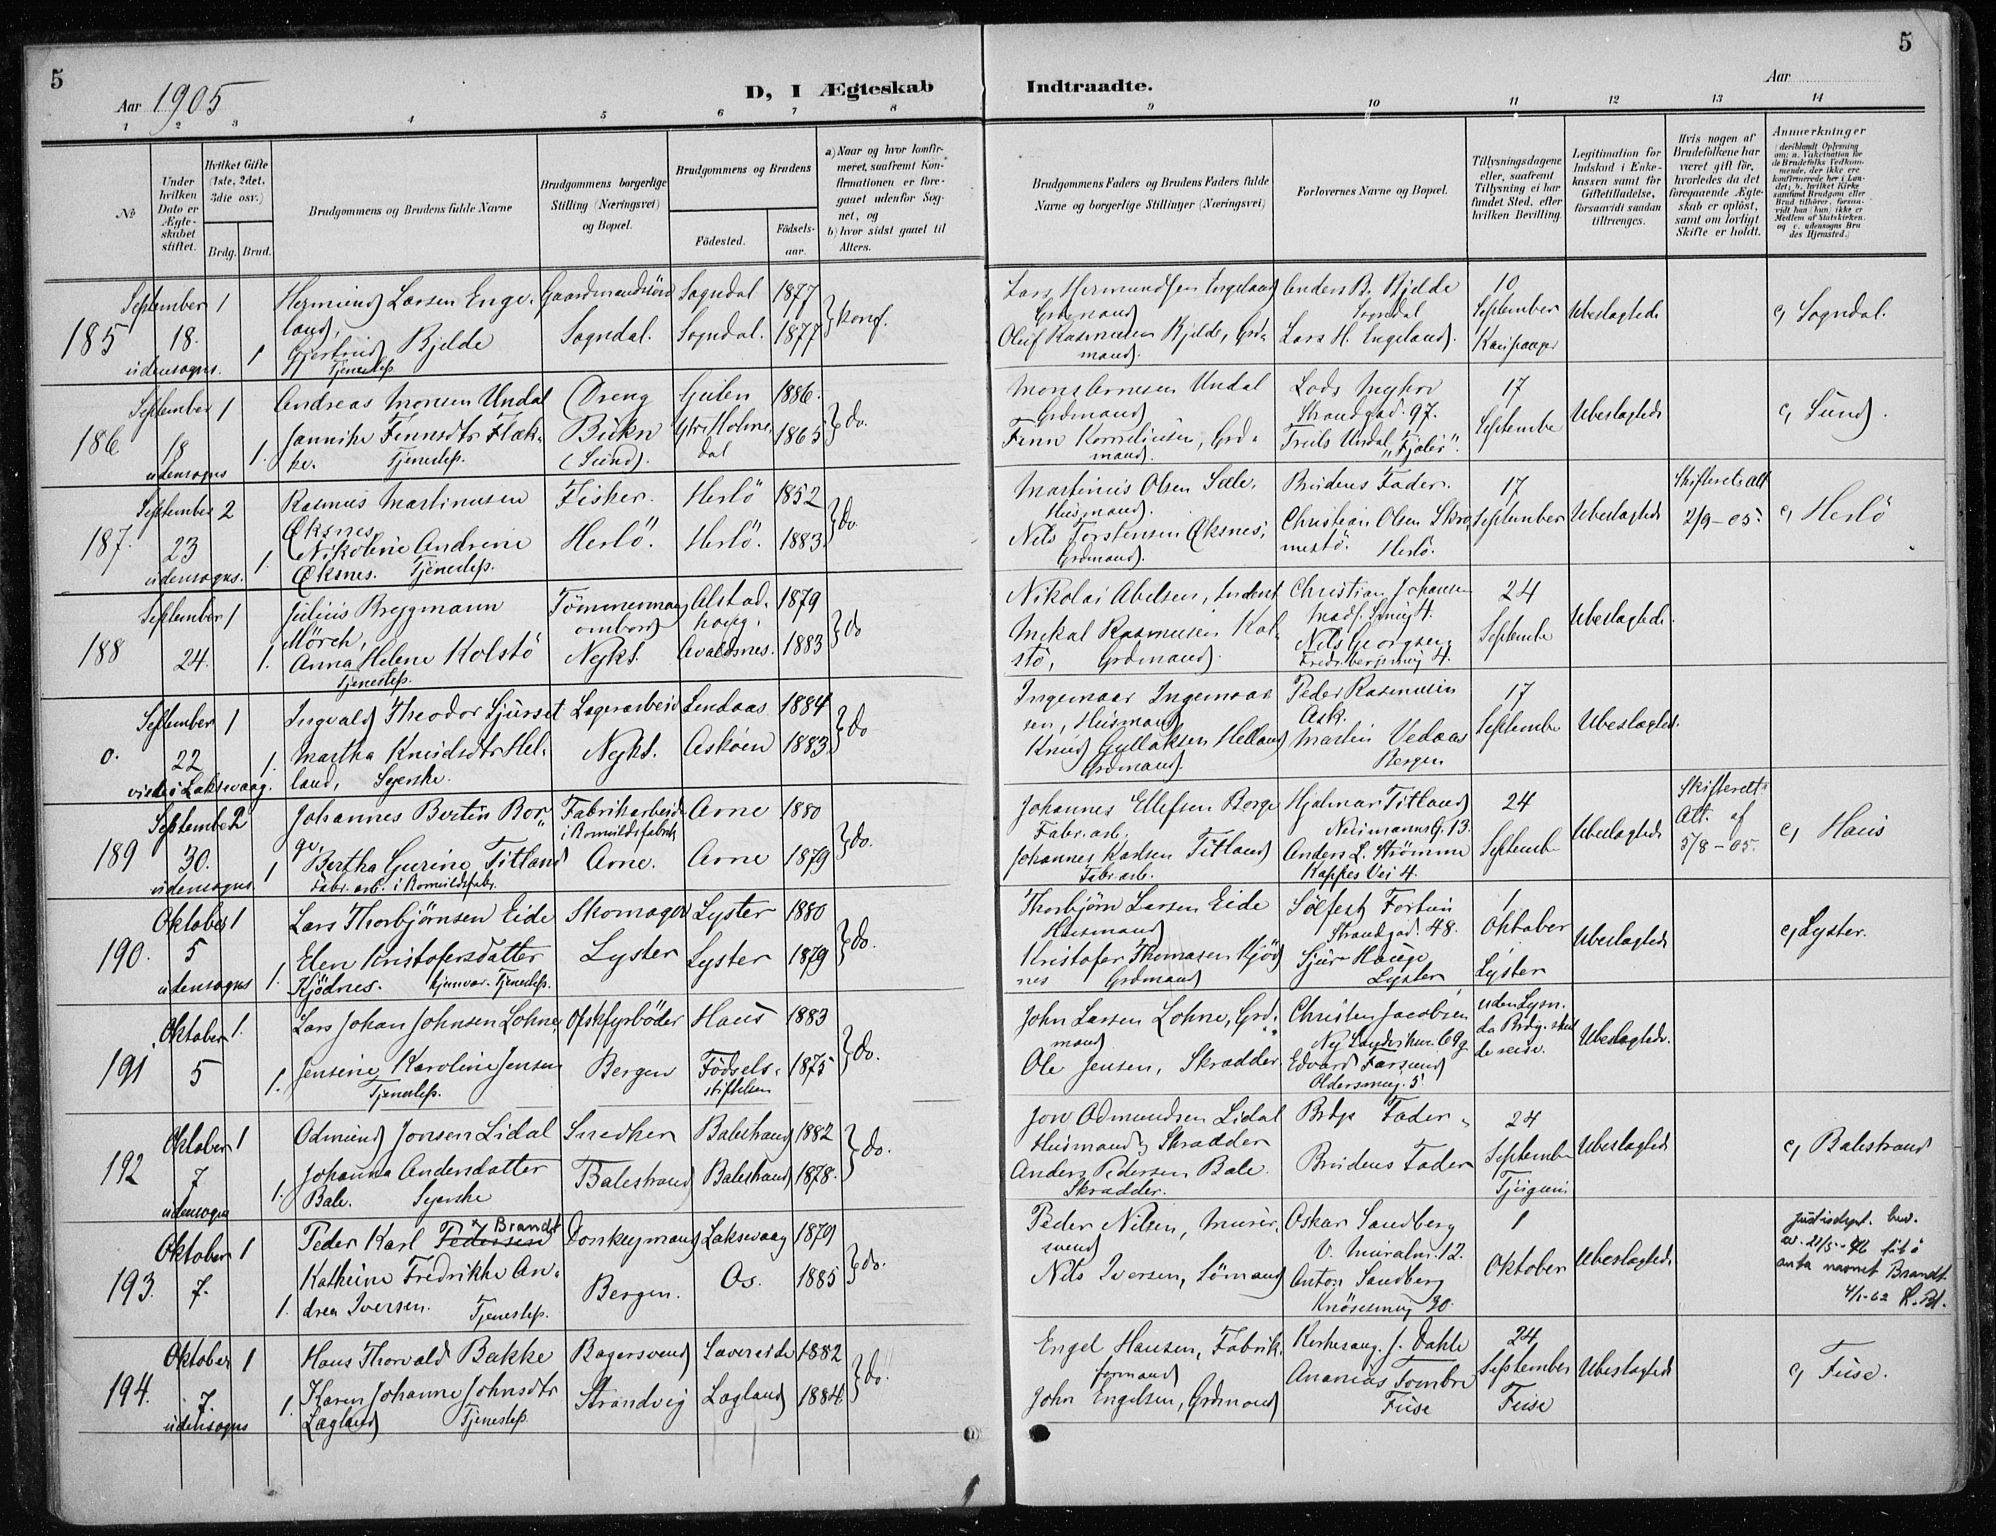 5
5
Aar 1905
D, I Ægteskab
Indtraadte.
Aar
1 2 3 4 5 6 7 8 9 10 11 12 13 14
No
Under hvilken Dato er Ægteskabet stiftet.
Hvilket Gifte (1ste, 2det, 3die osv.)
Brdg. Brud.
Brudgommens og Brudens fulde Navne
Brudgommens borgerlige Stilling (Næringsvei) og Bopæl.
Brudgommens og Brudens
Födested.
Födselsaar.
a) Naar og hvor konfirmeret, saafremt Konfirmationen er foregaaet udenfor Sognet, og
b) hvor sidst gaaet til Alters.
Brudgommens Faders og Brudens Faders fulde Navne og borgerlige Stillinger (Næringsvei)
Forlovernes Navne og Bopæl.
Tillysningsdagene eller, saafremt Tillysning ei har fundet Sted, efter hvilken Bevilling.
Legitimation for Indskud i Enkekassen samt for Giftetilladelse, forsaavidt saadan tiltrænges.
Hvis nogen af Brudefolkene har været gift för, hvorledes da det foregaaende Ægteskab er oplöst, samt om lovligt Skifte er holdt.
Anmerkninger
185
September 18.
udensogns.
1
1
Hermund Larsen Engeland,
Gjertrud Bjelde
Tjenestep.
Gaardmandssön
Sogndal.
Sogndal
Sogndal.
1877
1877
konf.
Lars Hermundsen Engeland
Grdmand
Oluf Rasmusen Bjelde, Grdmand.
Anders B. Bjelde
Sogndal
Lars H. Engeland.
10
September
Kaupanger
Ubeslægtede
Sogndal.
186
September
18
udensogns
1
1.
Andreas Monsen Undal
Jannike Finnsdtr Flække.
Tjenestep.
Dreng
(Sund).
Gulen
1886.
1865
do.
Mons Arnesen Undal
Grdmand
Finn Korneliusen, Grdmand.
Strandgad. 97.
Undal "Fjaler".
17
September
Ubeslægtede
Sund.
187.
September
23
udensogns.
2
1.
Rasmus Martinusen Øksnes
Nikoline Andrine Øksnes.
Tjenestep.
Fisker.
Herlö.
Herlö
Herlö.
1852
1883.
do.
Martinus Olsen Sæle,
Husmand.
Nils Torstensen Øksnes,
Grdmand.
Brudens Fader.
Christian Olsen Skromestö.
Herlö.
17
September
Ubeslægtede
Skifterets Att
2/9-05.
Herlö
188
September
24.
1
1.
Julius Bryggmann Mörch,
Anna Helene Kolstö
Tjenestep.
Tömmermand ombord
Nykk.
Alstadhoug.
Avaldsnes.
1879
1883
do
Nikolai Abelsen,
Mikal Rasmusen Kolstö,
Grdmand.
Christian Johansen
Nils Georgsen
24
September
Ubeslægtede.
0.
September
22
vied i Laksevaag.
1
1.
Ingvald Theodor Sjurset
Martha Knudsdtr Helland,
Syerske.
Lagerarbeid
Nykk.
Lindaas
Asköen
1884
1883.
do
Ingemaar Ingemaarsen, Husmand
Knud Gullaksen Helland
Grdmand.
Peder Rasmusen
Ask.
Martin Vedaas
Bergen
17
September
Ubeslægtede.
189
September
30.
udensogns.
2
1
Johannes Bertin Borge,
Bertha Gurine Titland
Fabr. arb. i Romuldsfabr.
Fabrikarbeid
i Romuldsfabrik
Arne.
Arne
Arne
1880
1879
do.
Johannes Ellefsen Borge
Fabr. arb.
Johannes Karlsen Titland
Fabr. arb.
Hjalmar Titland
Neumanns G. 13.
Anders L. Strömme
Kappes Vei 4.
24
Septemb
Ubeslægtede
Skifterets
Att. af
5/8-05.
Haus
190.
Oktober
5
udensogns
1
1.
Lars Thorbjörnsen Eide
Elen Kristofersdatter Kjödnes.
hjemvær. Tjenestep.
Skomager
Lyster
Lyster
Lyster
1880
1879
do.
Thorbjörn Larsen Eide
Husmand
Kristofer Thomasen Kjödnes
Grdmand
Sölfest Fortun
Strandgad. 48.
Sjur Hauge
Lyster
1
Oktober
Lyster
Ubeslægtede
Lyster.
191
Oktober
5
1.
1.
Lars Johan Johnsen Lohne,
Jensine Karoline Jensen
Tjenestep.
Bergen
Haus
Födselsstiftelsen
1883
1875
do.
John Larsen Lohne, Grdmand
Ole Jensen, Skrædder.
Christen Jacobsen
Edvard Farsund
uden Lysn.
da Brdg. skulde reise.
Ubeslægtede.
192
Oktober
7
udensogns
1
1.
Odmund Jonsen Lidal
Johanna Andersdatter Bale.
Syerske
Snedker
Balestrand
Balestrand
Balestrand
1882
1878.
do.
Jon Odmundsen Lidal
Husmand & Skrædder
Anders Pedersen Bale.
Skrædder.
Brdgs Fader
Brudens Fader
24
September
Ubeslægtede
Balestrand
193.
Oktober
7.
1
1.
Peder Karl Pedersen Brandt
Kathrine Fredrikke Andrea Iversen.
Tjenestep.
Donkeymand
Bergen.
Laksevaag
Os.
1879
1885
do.
Peder Nilsen, Mursvend
Nils Iversen, Sömand
Oskar Sandberg
V. Muralm. 12.
Anton Sandberg
Knösesmug 30.
1
Oktober
Ubeslægtede
Justisdept. bev.
av 21/5-46 til å
anta navnet Brandt.
194.
Oktober
7.
udensogns
1
1.
Hans Thorvald Bakke
Karen Johanne Johnsdtr Lægland
Tjenestep.
Bagersvend
Strandvig
Lægland
1882
1884.
do.
Engel Hansen, Fabrikformand
John Engelsen, Grdmand
Kirkesang. J. Dahle
Ananias Tombre
Fuse
24
September
Fuse
Ubeslægtede
Fuse.